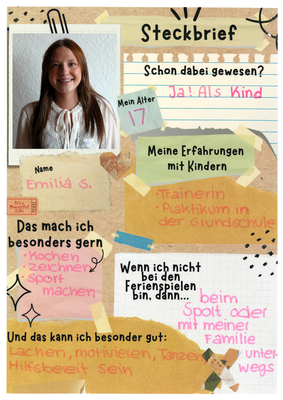 Steckbrief
Schon dabei gewesen?
Ja! Als Kind
Mein Alter
17
Meine Erfahrungen
mit Kindern
· Trainerin
· Praktikum in
der Grundschule
Name
Emilia S.
Das mach ich
besonders gern
· Kochen
· zeichnen
· Sport
machen
Wenn ich nicht
bei den
Ferienspielen
bin, dann...
beim
Sport oder
mit meiner
Familie
unter-
wegs
Und das kann ich besonder gut:
Lachen, motivieren, Tanzen
Hilfsbereit sein